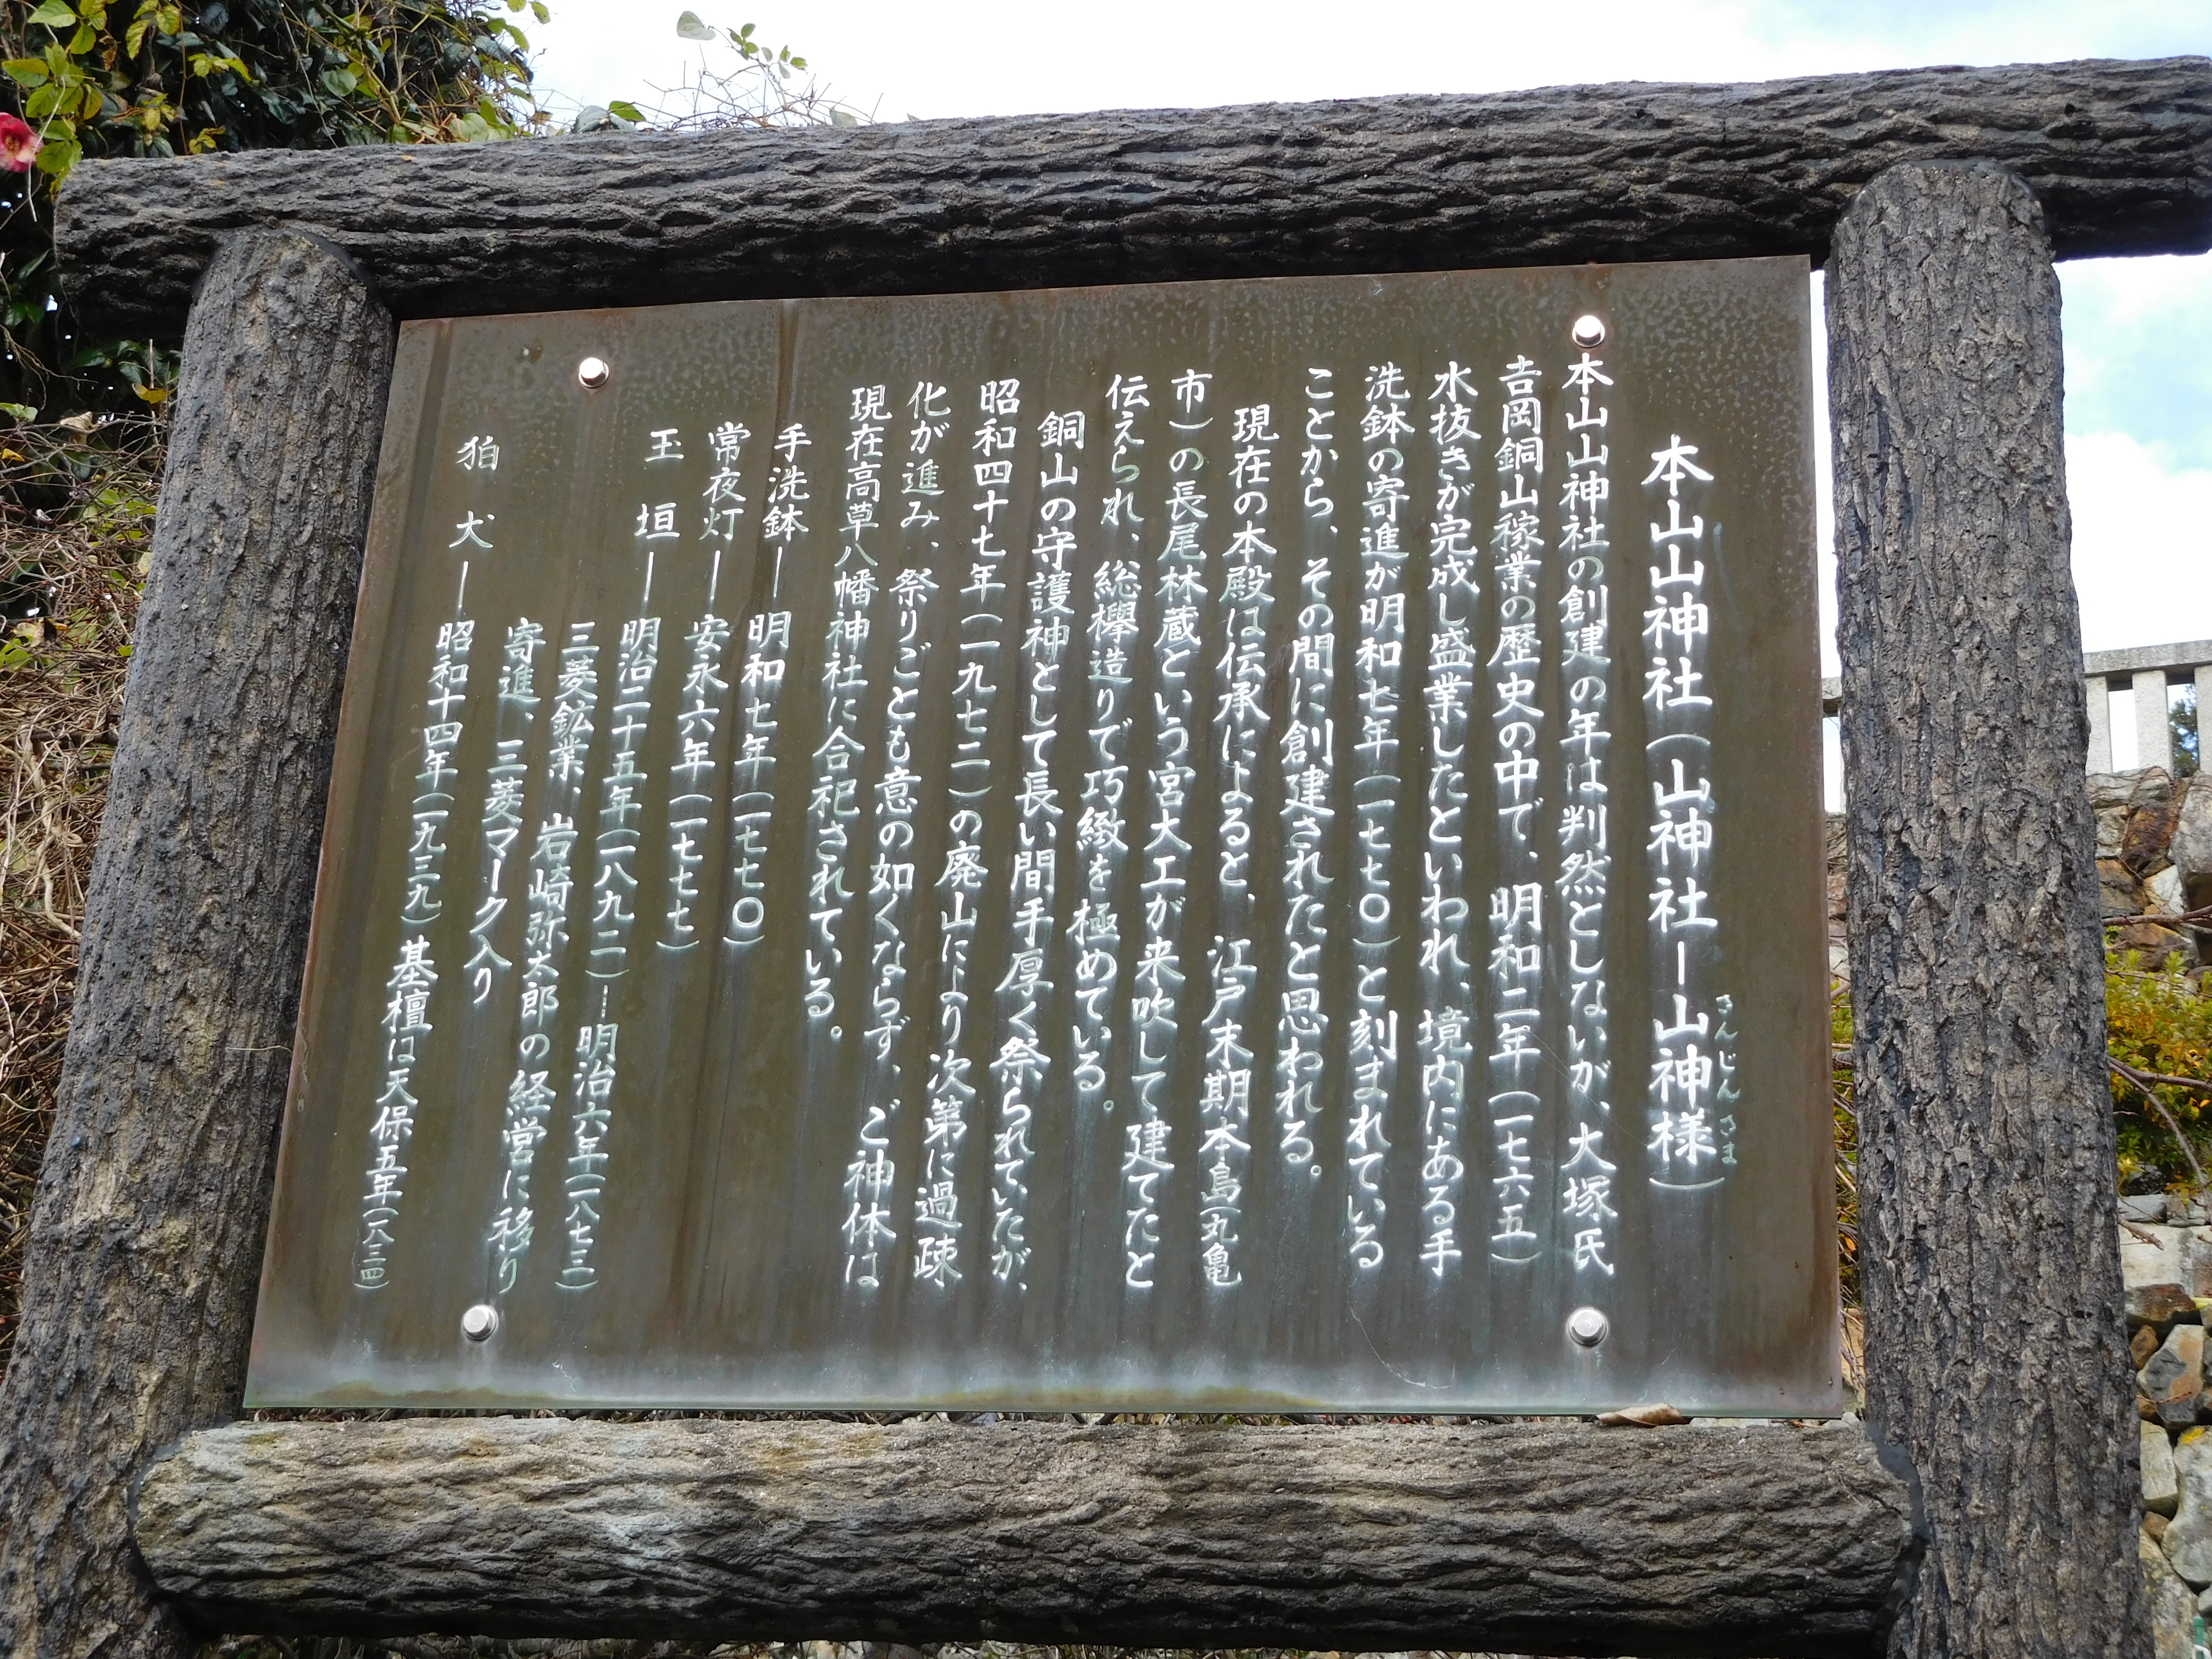 本山山神社（山神社ー山神様）
さんじんさま
本山山神社の創建の年は判然としないが、大塚氏
吉岡銅山稼業の歴史の中で、明和二年（一七六五）
水抜きが完成し盛業したといわれ、境内にある手
洗鉢の寄進が明和七年（一七七〇）と刻まれている
ことから、その間に創建されたと思われる。
現在の本殿は伝承によると、江戸末期本島（丸亀
市）の長尾林蔵という宮大工が来吹して建てたと
伝えられ、総欅造りで巧緻を極めている。
銅山の守護神として長い間手厚く祭られていたが、
昭和四十七年（一九七二）の廃山により次第に過疎
化が進み、祭りごとも意の如くならず、ご神体は
現在高草八幡神社に合祀されている。
手洗鉢ー明和七年（一七七〇）
常夜灯ー安永六年（一七七七）
玉垣ー明治二十五年（一八九二）ー明治六年（一八七三）
三菱鉱業、岩崎弥太郎の経営に移り
寄進、三菱マーク入り
狛犬ー昭和十四年（一九三九）基檀は天保五年（一八三四）